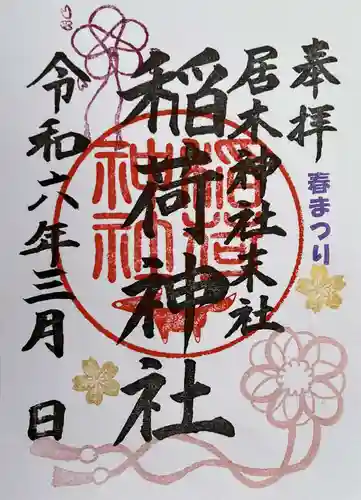 奉拝
春まつり
居木神社末社
稲荷神社
令和六年三月 日
稲荷
神社